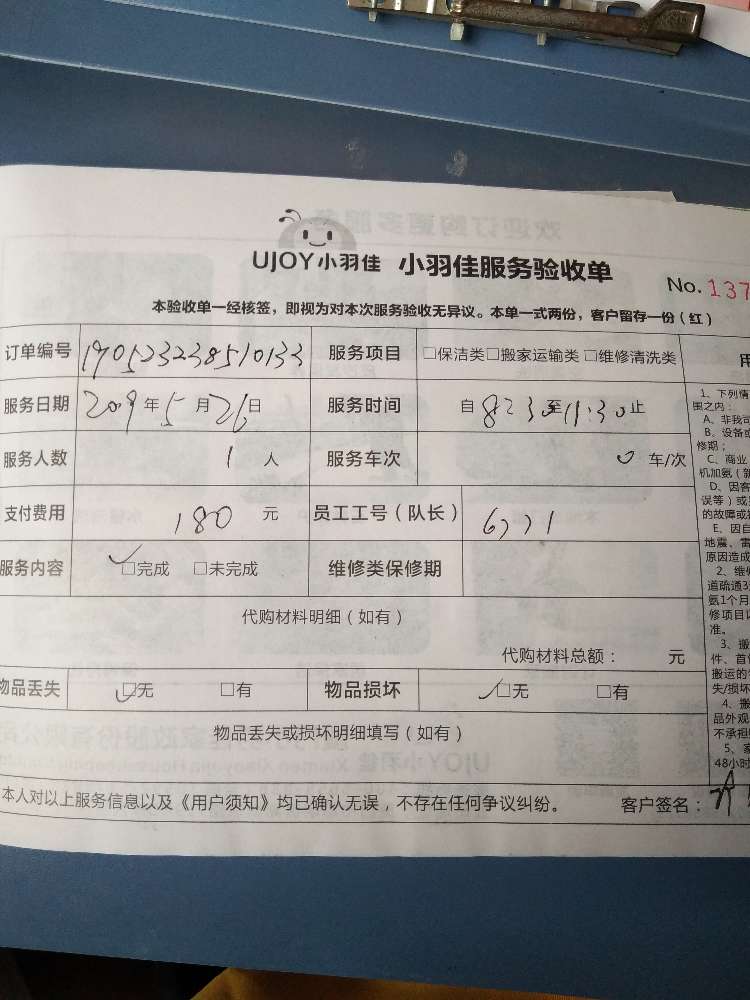 UJOY小羽佳 小羽佳服务验收单
No. 137
本验收单一经核签，即视为对本次服务验收无异议。本单一式两份，客户留存一份（红）
订单编号 190523238510133 服务项目 □保洁类□搬家运输类□维修清洗类
服务日期 2019年5月26日 服务时间 自8:30至11:30止
服务人数 1人 服务车次 0车/次
支付费用 180元 员工工号（队长）6771
服务内容 ✓□完成 □未完成 维修类保修期
代购材料明细（如有）
代购材料总额： 元
物品丢失 ✓□无 □有 物品损坏 ✓□无 □有
物品丢失或损坏明细填写（如有）
本人对以上服务信息以及《用户须知》均已确认无误，不存在任何争议纠纷。 客户签名：
用
1、下列情
围之内：
A、非我司
B、设备或
修期；
C、商业
机加氨（新
D、因客
误等）或
的故障或损
E、因自
地震、雷
原因造成
2、维修
道疏通3
氨1个月
修项目以
准。
3、搬
件、首饰
搬运的
失/损坏
4、搬
品外观
不承担
5、家
48小时